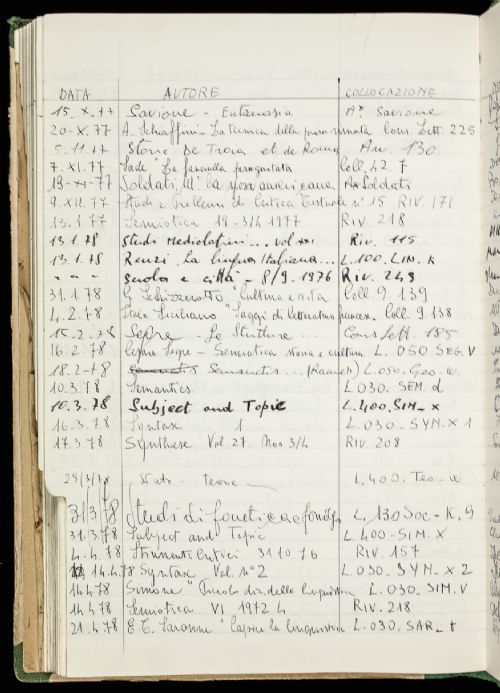 DATA AUTORE COLLOCAZIONE
15. X. 77 Savione - Eutanasia Aº Savione
20. X. 77 A. Schiaffini - La tecnica della prosa rimata Cons. Lett. 225
5. 11. 77 Storie de Troia et de Roma An. 130
7. XI. 77 Sade "La fanciulla perseguitata Coll. 42. 7
19-XI-77 Soldati M. la sposa americana A Soldati
9. XII. 77 Studi e Problemi di Critica Testuale nº 15 RIV. 171
13. 1 77 Semiotica 19-3/4 1977 RIV. 218
13. 1. 78 Studi Mediolatini ... vol. XXI Riv. 115
13. 1. 78 Renzi La lingua italiana ... L. 100. LIN. R
" - " Scuola e città - 8/9. 1976 RIV. 243
31. 1 78 G. "Cultura e vita Coll. 9 139
4. 2. 78 Italo Siciliano "Saggi di letteratura francese Coll. 9. 138
15-2-78 Segre - Le Strutture ... Cons Lett. 185
16. 2. 78 Segre - Semiotica storia e cultura L. 050 SEG. V
18. 2-78 Semantics ... L 050.
10. 3. 78 Semantics L 030. SEM. d
10. 3. 78 Subject and Topic L. 400. SIM_ X
16. 3. 78 Syntax 1 L. 030_ SYM. X 1
17. 3 78 Synthese Vol. 27. Nos 3/4 RIV 208
29/3/78 L, 400. Teo.
31 3 78 Studi di fonetica e fonologia L, 130 Soc - K. 9
31. 3. 78 Subject and Topic L. 400 - SIM. X
4. 4. 78 Strumenti Critici 31 10 76 RIV. 157
14. 4. 78 Syntax Vol. nº 2 L. 030 _ SYM_ X 2
14 4 78 Simone "Piccolo diz. della linguistica L. 030. SIM. V
14 4 78 Semiotica VI 1972 4 RIV. 218
21. 4. 78 E. T. Saronne "Capire la linguistica L. 030. SAR _ t